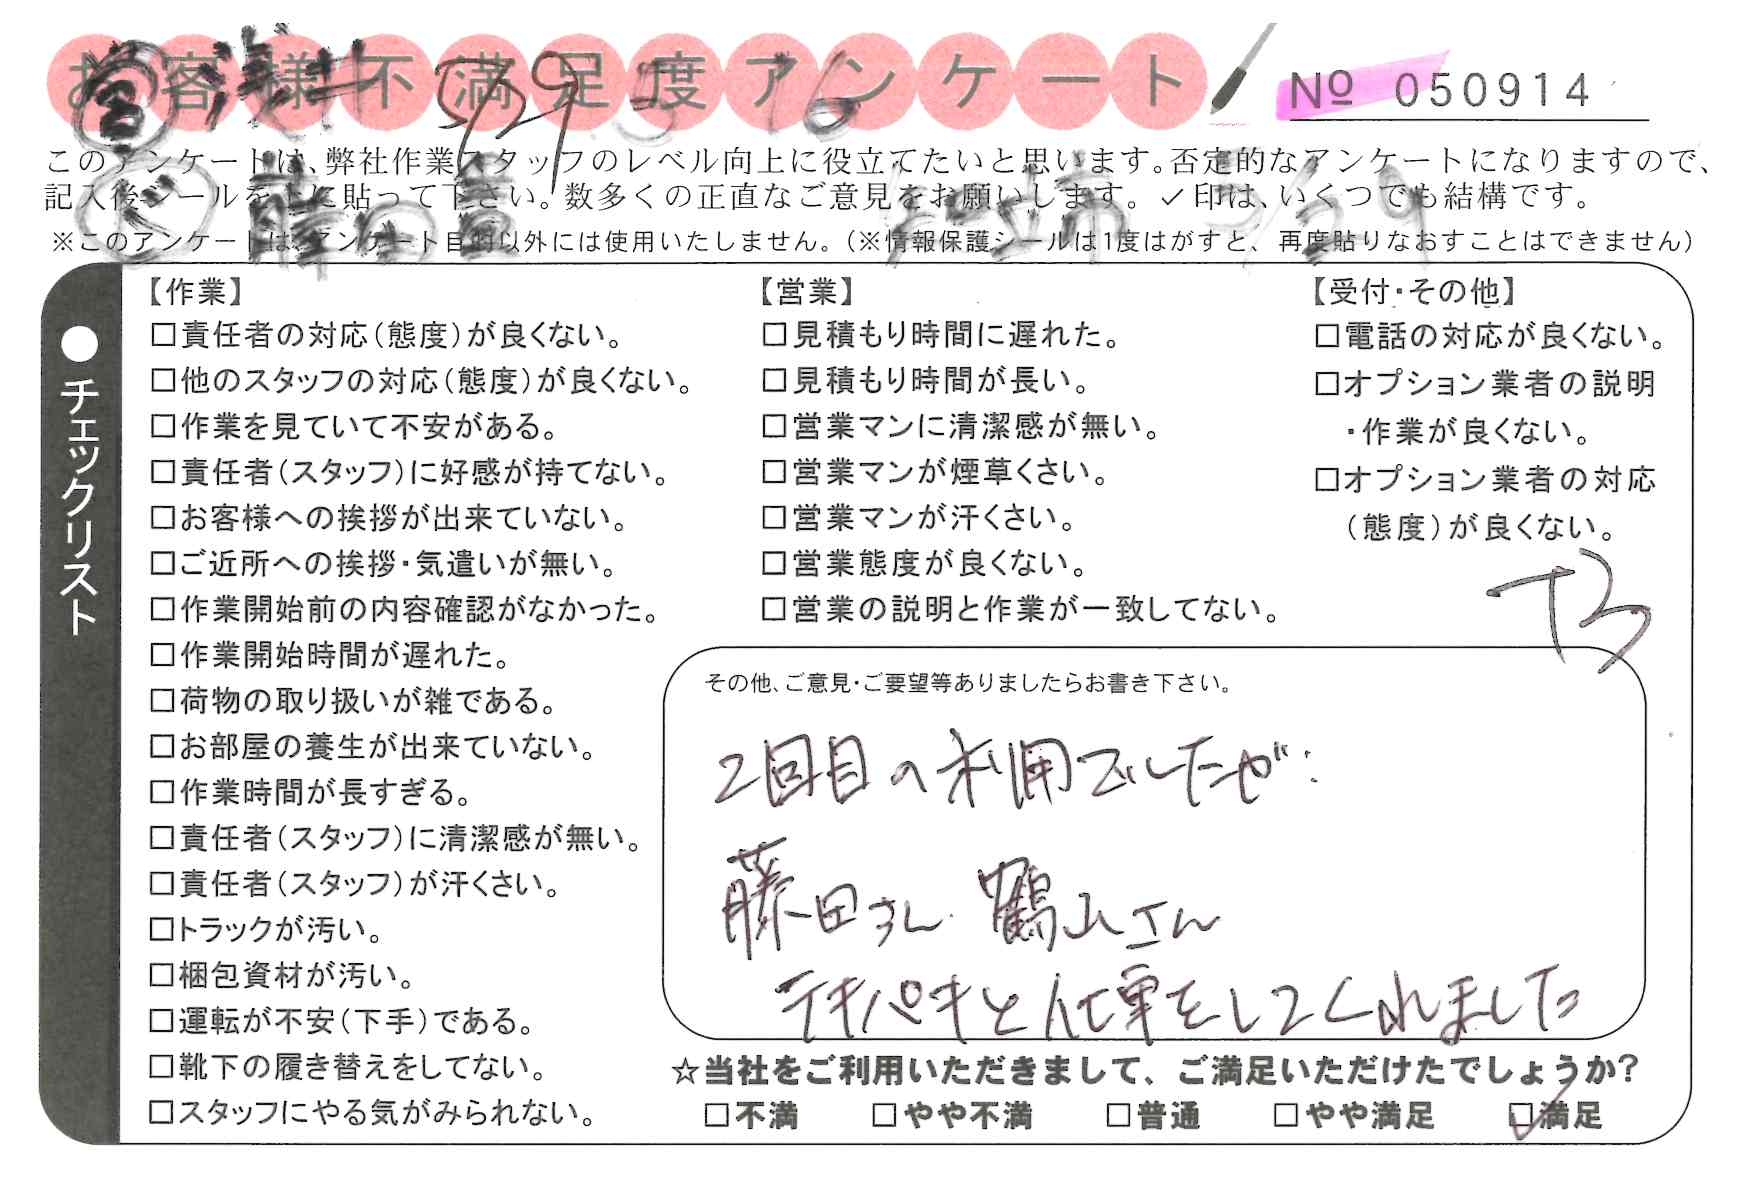 お客様不満足度アンケート
No 050914
5/29
このアンケートは、弊社作業スタッフのレベル向上に役立てたいと思います。否定的なアンケートになりますので、
記入後シールを上に貼って下さい。数多くの正直なご意見をお願いします。✓印は、いくつでも結構です。
※このアンケートは、アンケート目的以外には使用いたしません。(※情報保護シールは1度はがすと、再度貼りなおすことはできません)
●チェックリスト
【作業】
□責任者の対応(態度)が良くない。
□他のスタッフの対応(態度)が良くない。
□作業を見ていて不安がある。
□責任者(スタッフ)に好感が持てない。
□お客様への挨拶が出来ていない。
□ご近所への挨拶・気遣いが無い。
□作業開始前の内容確認がなかった。
□作業開始時間が遅れた。
□荷物の取り扱いが雑である。
□お部屋の養生が出来ていない。
□作業時間が長すぎる。
□責任者(スタッフ)に清潔感が無い。
□責任者(スタッフ)が汗くさい。
□トラックが汚い。
□梱包資材が汚い。
□運転が不安(下手)である。
□靴下の履き替えをしてない。
□スタッフにやる気がみられない。
【営業】
□見積もり時間に遅れた。
□見積もり時間が長い。
□営業マンに清潔感が無い。
□営業マンが煙草くさい。
□営業マンが汗くさい。
□営業態度が良くない。
□営業の説明と作業が一致してない。
【受付・その他】
□電話の対応が良くない。
□オプション業者の説明
・作業が良くない。
□オプション業者の対応
(態度)が良くない。
その他、ご意見・ご要望等ありましたらお書き下さい。
2回目の利用でしたが
藤田さん 鶴山さん
テキパキと仕事をしてくれました
☆当社をご利用いただきまして、ご満足いただけたでしょうか?
□不満 □やや不満 □普通 □やや満足 ☑満足